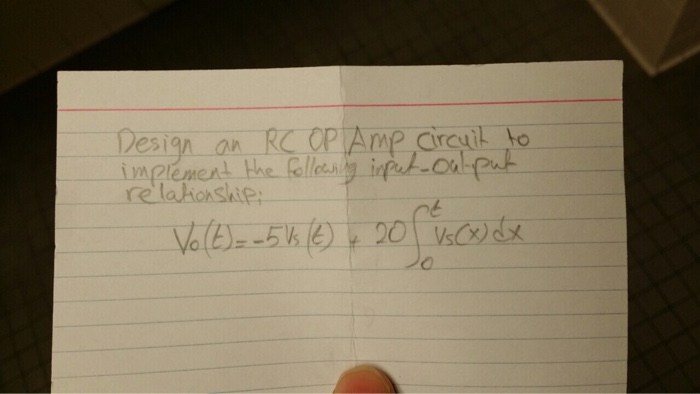 Design an RC OP Amp circuit to
implement the following input-output
relationship:
Vo(t) = -5Vs(t) + 20∫₀ᵗ Vs(x)dx